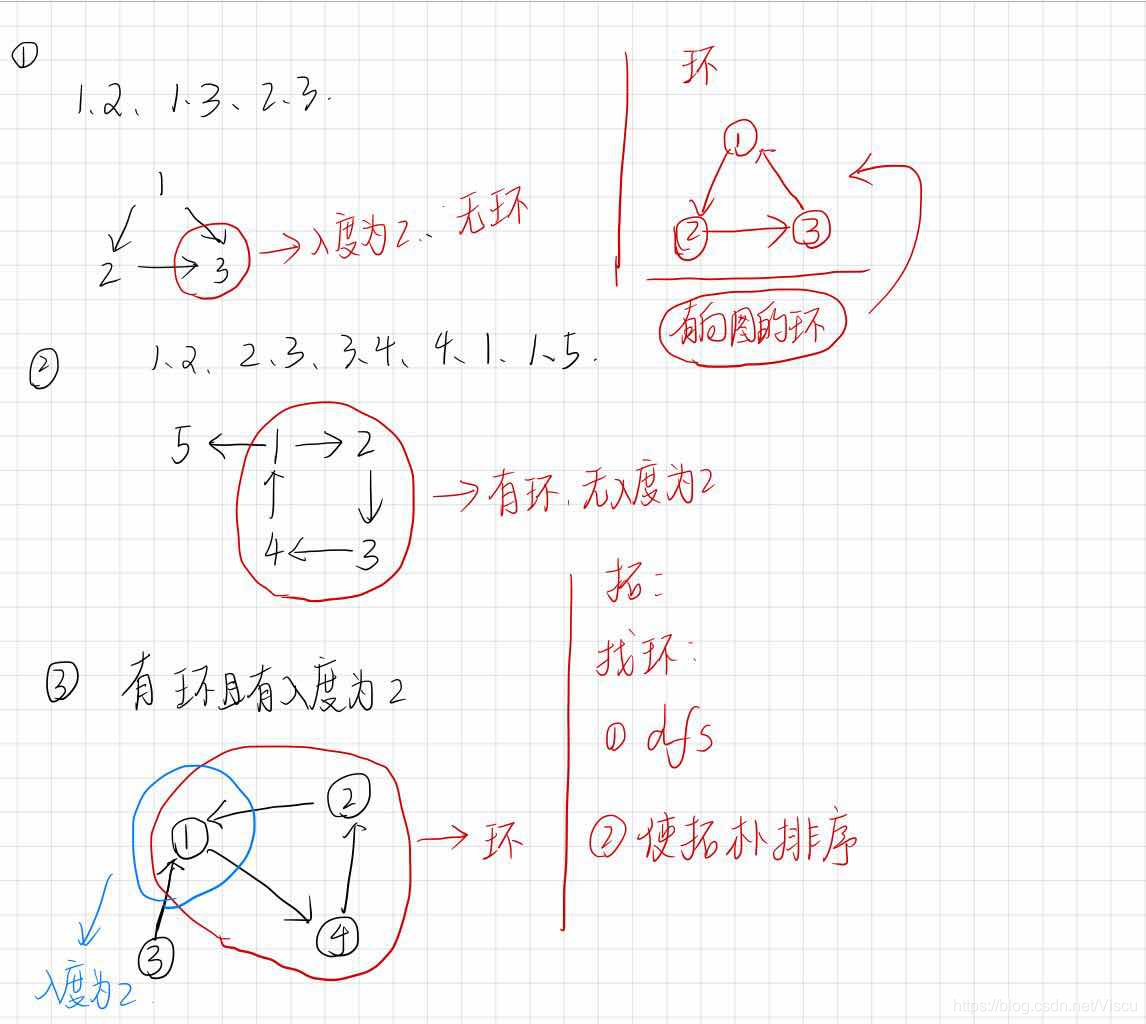 ①
1、2、 1、3、 2、3.
1
2
3
入度为2、: 无环
环
①
②
③
有向图的环
②
1、2、 2、3、 3、4、 4、1、 1、5.
5
1
2
4
3
有环, 无入度为2
③ 有环且有入度为2
①
②
③
④
环
入度为2
拓:
找环:
① dfs
② 使拓朴排序
https://blog.csdn.net/Viscu